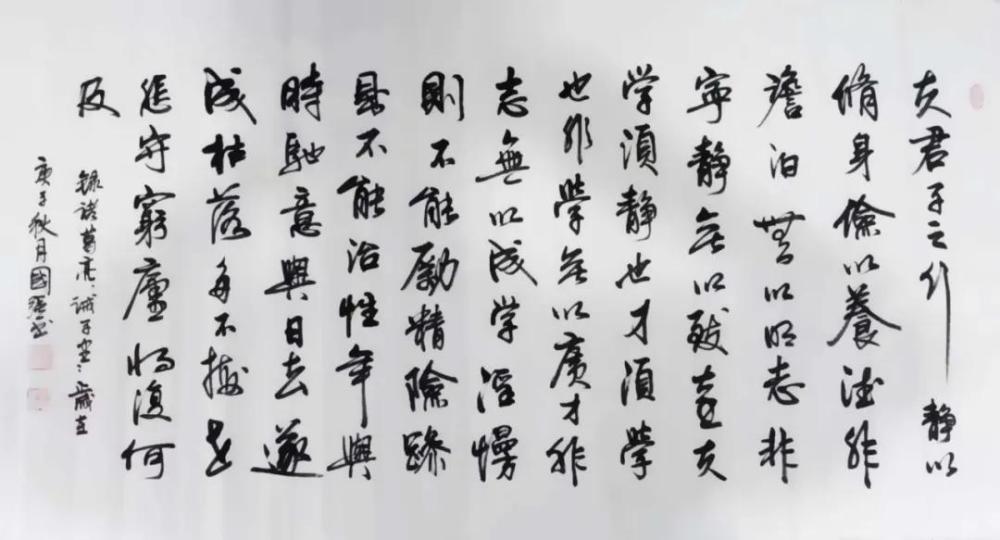 夫君子之行静以
脩身儉以養德非
澹泊無以明志非
寧静無以致遠夫
学須静也才須學
也非學無以廣才非
志無以成学淫慢
則不能勵精險躁
不能治性年與
時馳意與日去遂
成枯落多不接世
悲守窮廬將復何
及
録諸葛亮誡子書歲在
庚子秋月國強書